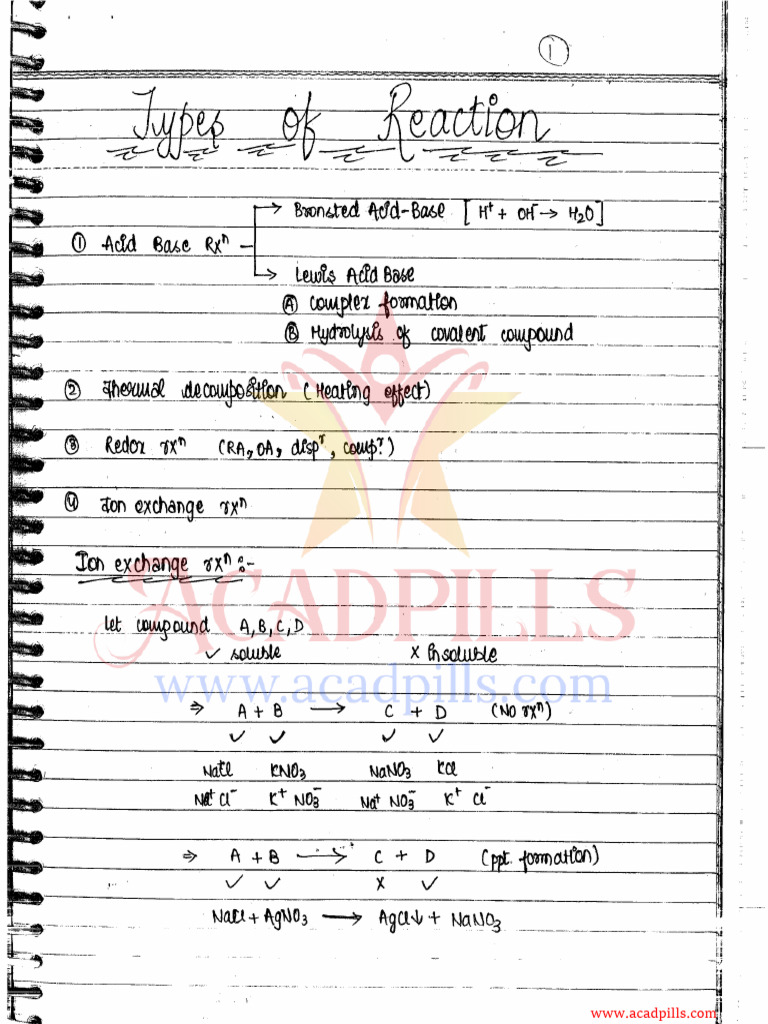 1
Types of Reaction
→ Bronsted Acid-Base [H⁺ + OH⁻ → H₂O]
① Acid Base Rxⁿ
→ Lewis Acid Base
Ⓐ complex formation
Ⓑ Hydrolysis of covalent compound
② Thermal decomposition (Heating effect)
③ Redox rxⁿ (RA, OA, dispʳ, compʳ)
④ Ion exchange rxⁿ
Ion exchange rxⁿ :-
ACADPILLS
let compound A, B, C, D
✓ soluble × Insoluble
www.acadpills.com
⇒ A + B → C + D (No rxⁿ)
✓ ✓ ✓ ✓
NaCl KNO₃ NaNO₃ KCl
Na⁺ Cl⁻ K⁺ NO₃⁻ Na⁺ NO₃⁻ K⁺ Cl⁻
⇒ A + B → C + D (ppt. formation)
✓ ✓ × ✓
NaCl + AgNO₃ → AgCl↓ + NaNO₃
www.acadpills.com